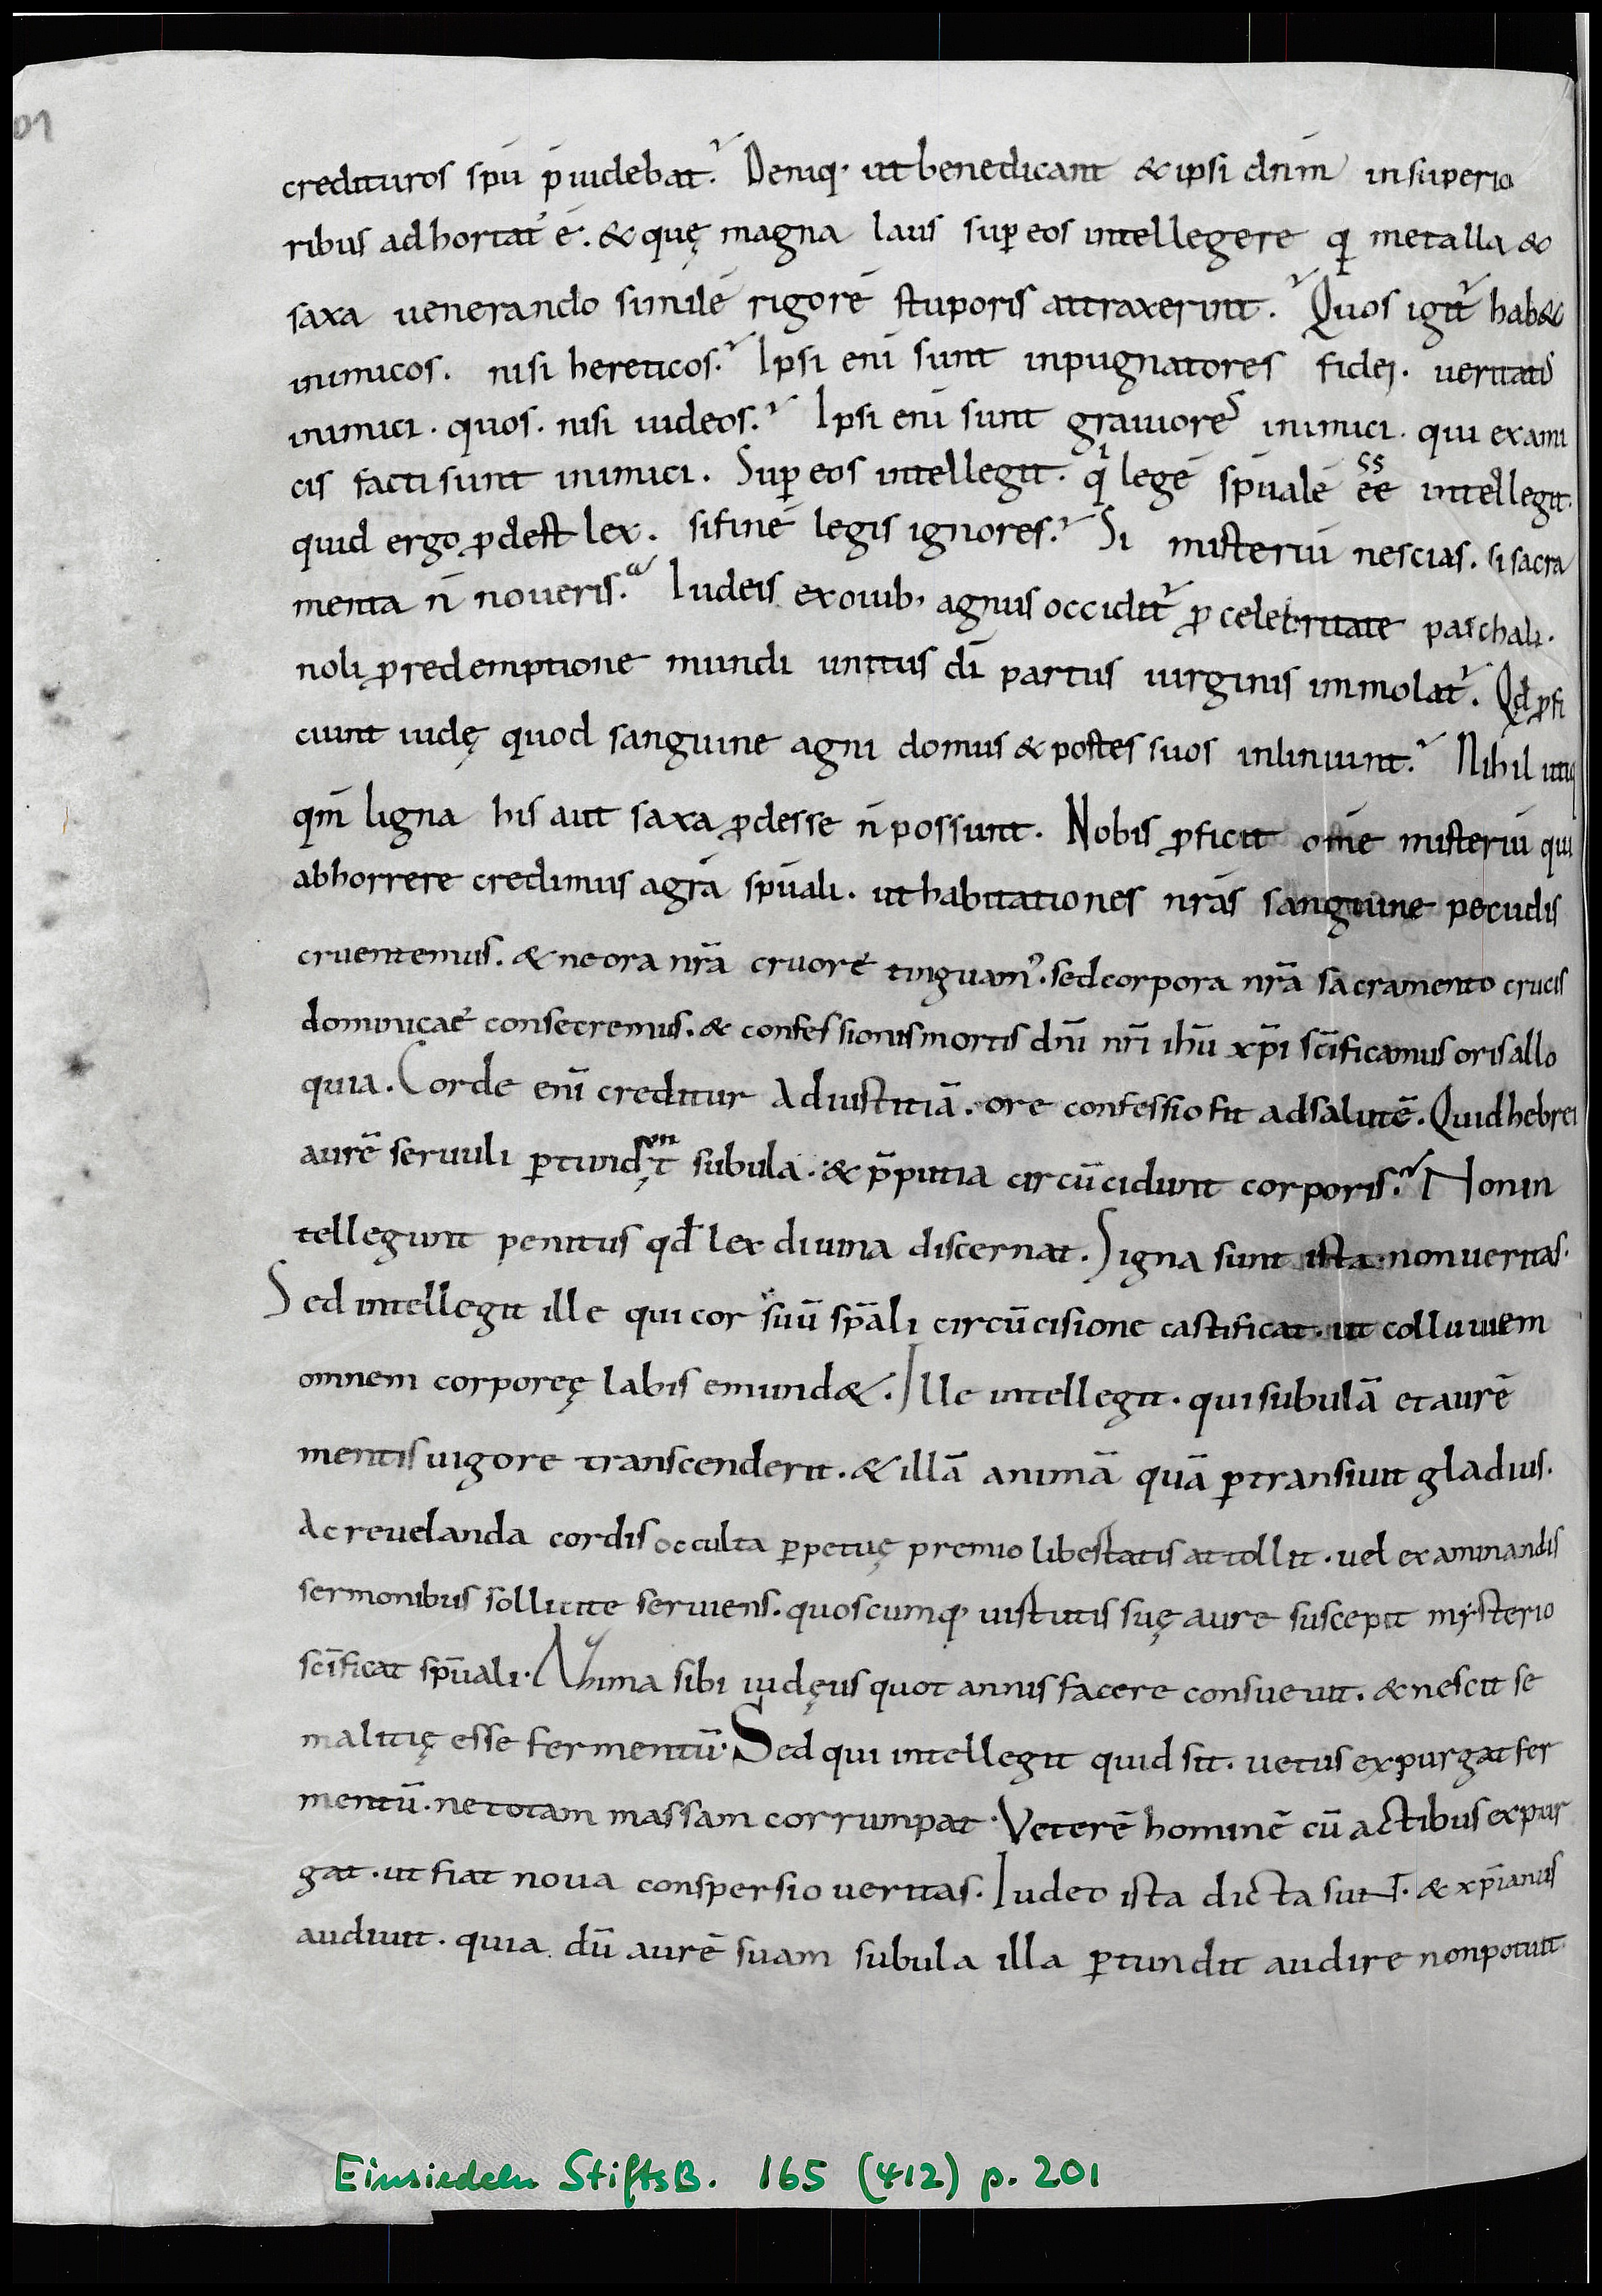 01
credituros spū p̄uidebat. Deniq; ut benedicant & ipsi dnm̄ insuperio
ribus adhortat' ē. & quę magna laus sup̱ eos intellegere q̱ metalla &
saxa uenerando similē rigorē stuporis attraxerint. Quos igit' hab&
inimicos. nisi hereticos. Ipsi enī sunt inpugnatores fidei. ueritatis
inimici. quos. nisi iudeos. Ipsi enī sunt grauiores inimici. qui ex ami
cis facti sunt inimici. Sup̱ eos intellegit. qͥ legē sp̄ualē ee ss intellegit.
quid ergo ꝓdest lex. si finē legis ignores. Si misteriū nescias. si sacra
menta n̄ noueris. Iudeis ex ouib; agnus occidit' ꝓ celebritate paschali.
nob ꝓ redemptione mundi unitus dī partus uirginis immolat'. Qd ꝓfi
ciunt iudę quod sanguine agni domus & postes suos inliniunt. Nihil utiq
qm̄ ligna his aut saxa ꝓdesse n̄ possunt. Nobis ꝓficit om̄e misteriū qui
abhorrere credimus agrā sp̄uali. ut habitationes nrās sanguine pecudis
cruentemus. & ne ora nr̄a cruore tinguam'. sed corpora nr̄a sacramento crucis
dominicae consecremus. & confessionis mortis dnī nrī ihū xp̄i scīficamus oris allo
quia. Corde enī creditur ad iustitiā. ore confessio fit ad salutē. Quid hebrei
aurē seruuli ꝑtundt̄ on subula. & p̄putia circūcidunt corporis. Non in
tellegunt penitus qd̄ lex diuina discernat. Signa sunt ista. non ueritas.
Sed intellegit ille qui cor suū sp̄ali circūcisione castificat. ut colluuiem
omnem corporeę labis emund&. Ille intellegit. qui subulā et aurē
mentis uigore transcenderit. & illā animā quā ꝑtransiuit gladius.
Ac reuelanda cordis occulta ꝑpetuę premio libertatis attollit. uel examinandis
sermonibus sollicite seruiens. quoscumq; uirtutis suę aure suscepit mysterio
scīficat sp̄uali. Azima sibi iudęus quot annis facere consueuit. & nescit se
malitię esse fermentū. Sed qui intellegit quid sit. uetus expurgat fer
mentū. ne totam massam corrumpat. Veterē hominē cū actibus expur
gat. ut fiat noua conspersio ueritas. Iudeo ista dicta sunt. & xp̄ianus
audiuit. quia dū aurē suam subula illa ꝑtundit audire non potuit.
Einsiedeln StiftsB. 165 (412) p. 201